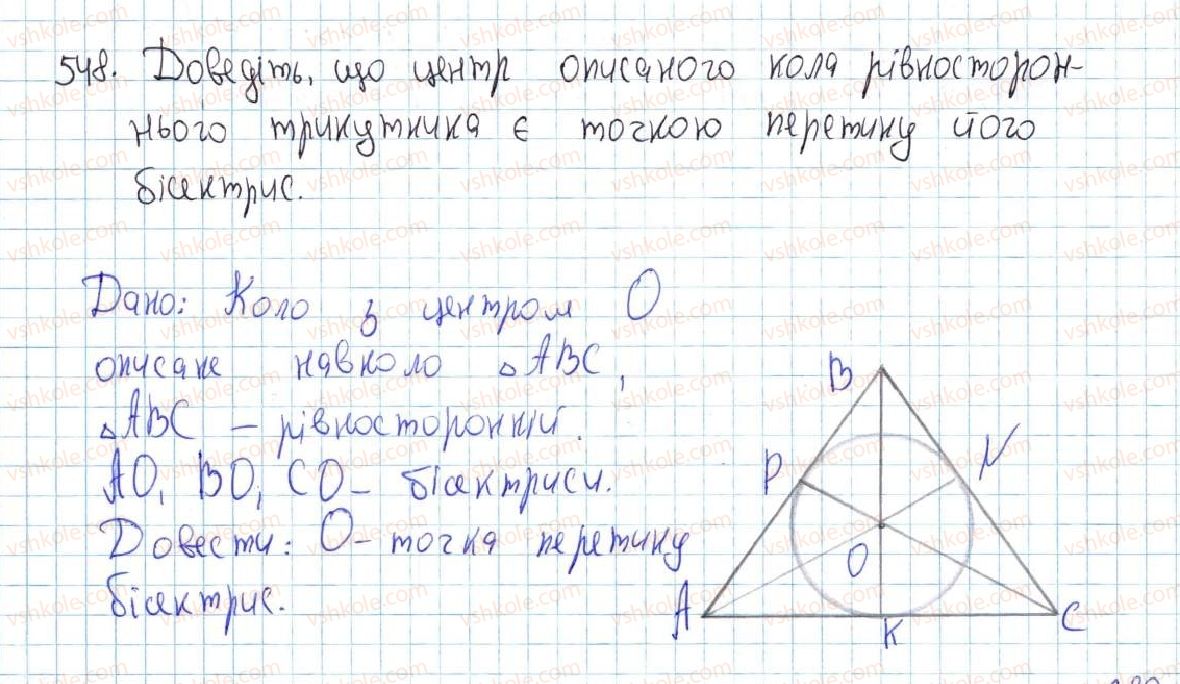 548. Доведіть, що центр описаного кола рівносторон-
нього трикутника є точкою перетину його
бісектрис.
Дано: Коло з центром O
описане навколо △ABC,
△ABC – рівносторонній.
AO, BO, CO – бісектриси.
Довести: O – точка перетину
бісектрис.
B
P
N
O
A
K
C
vshkole.com